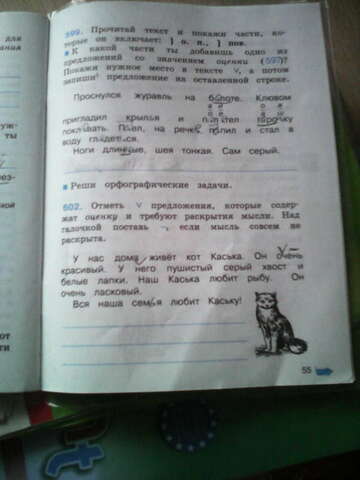 599. Прочитай текст и покажи части, ко-
торые он включает: } о. п., } пов.
▪ К какой части ты добавишь одно из
предложений со значением оценки (597)?
Покажи нужное место в тексте ∨, а потом
запиши предложение на оставленной строке.
Проснулся журавль на болоте. Клювом
пригладил крылья и
покл вать. П ел, на речке п пил и стал в
воду гл деться.
Ноги длинные, шея тонкая. Сам серый.
▪ Реши орфографические задачи.
602. Отметь ∨ предложения, которые содер-
жат оценку и требуют раскрытия мысли. Над
галочкой поставь –, если мысль совсем не
раскрыта.
У нас дома живёт кот Каська. Он очень
красивый. У него пушистый серый хвост и
белые лапки. Наш Каська любит рыбу. Он
очень ласковый.
Вся наша семья любит Каську!
55
для
ты
ной
от
ти